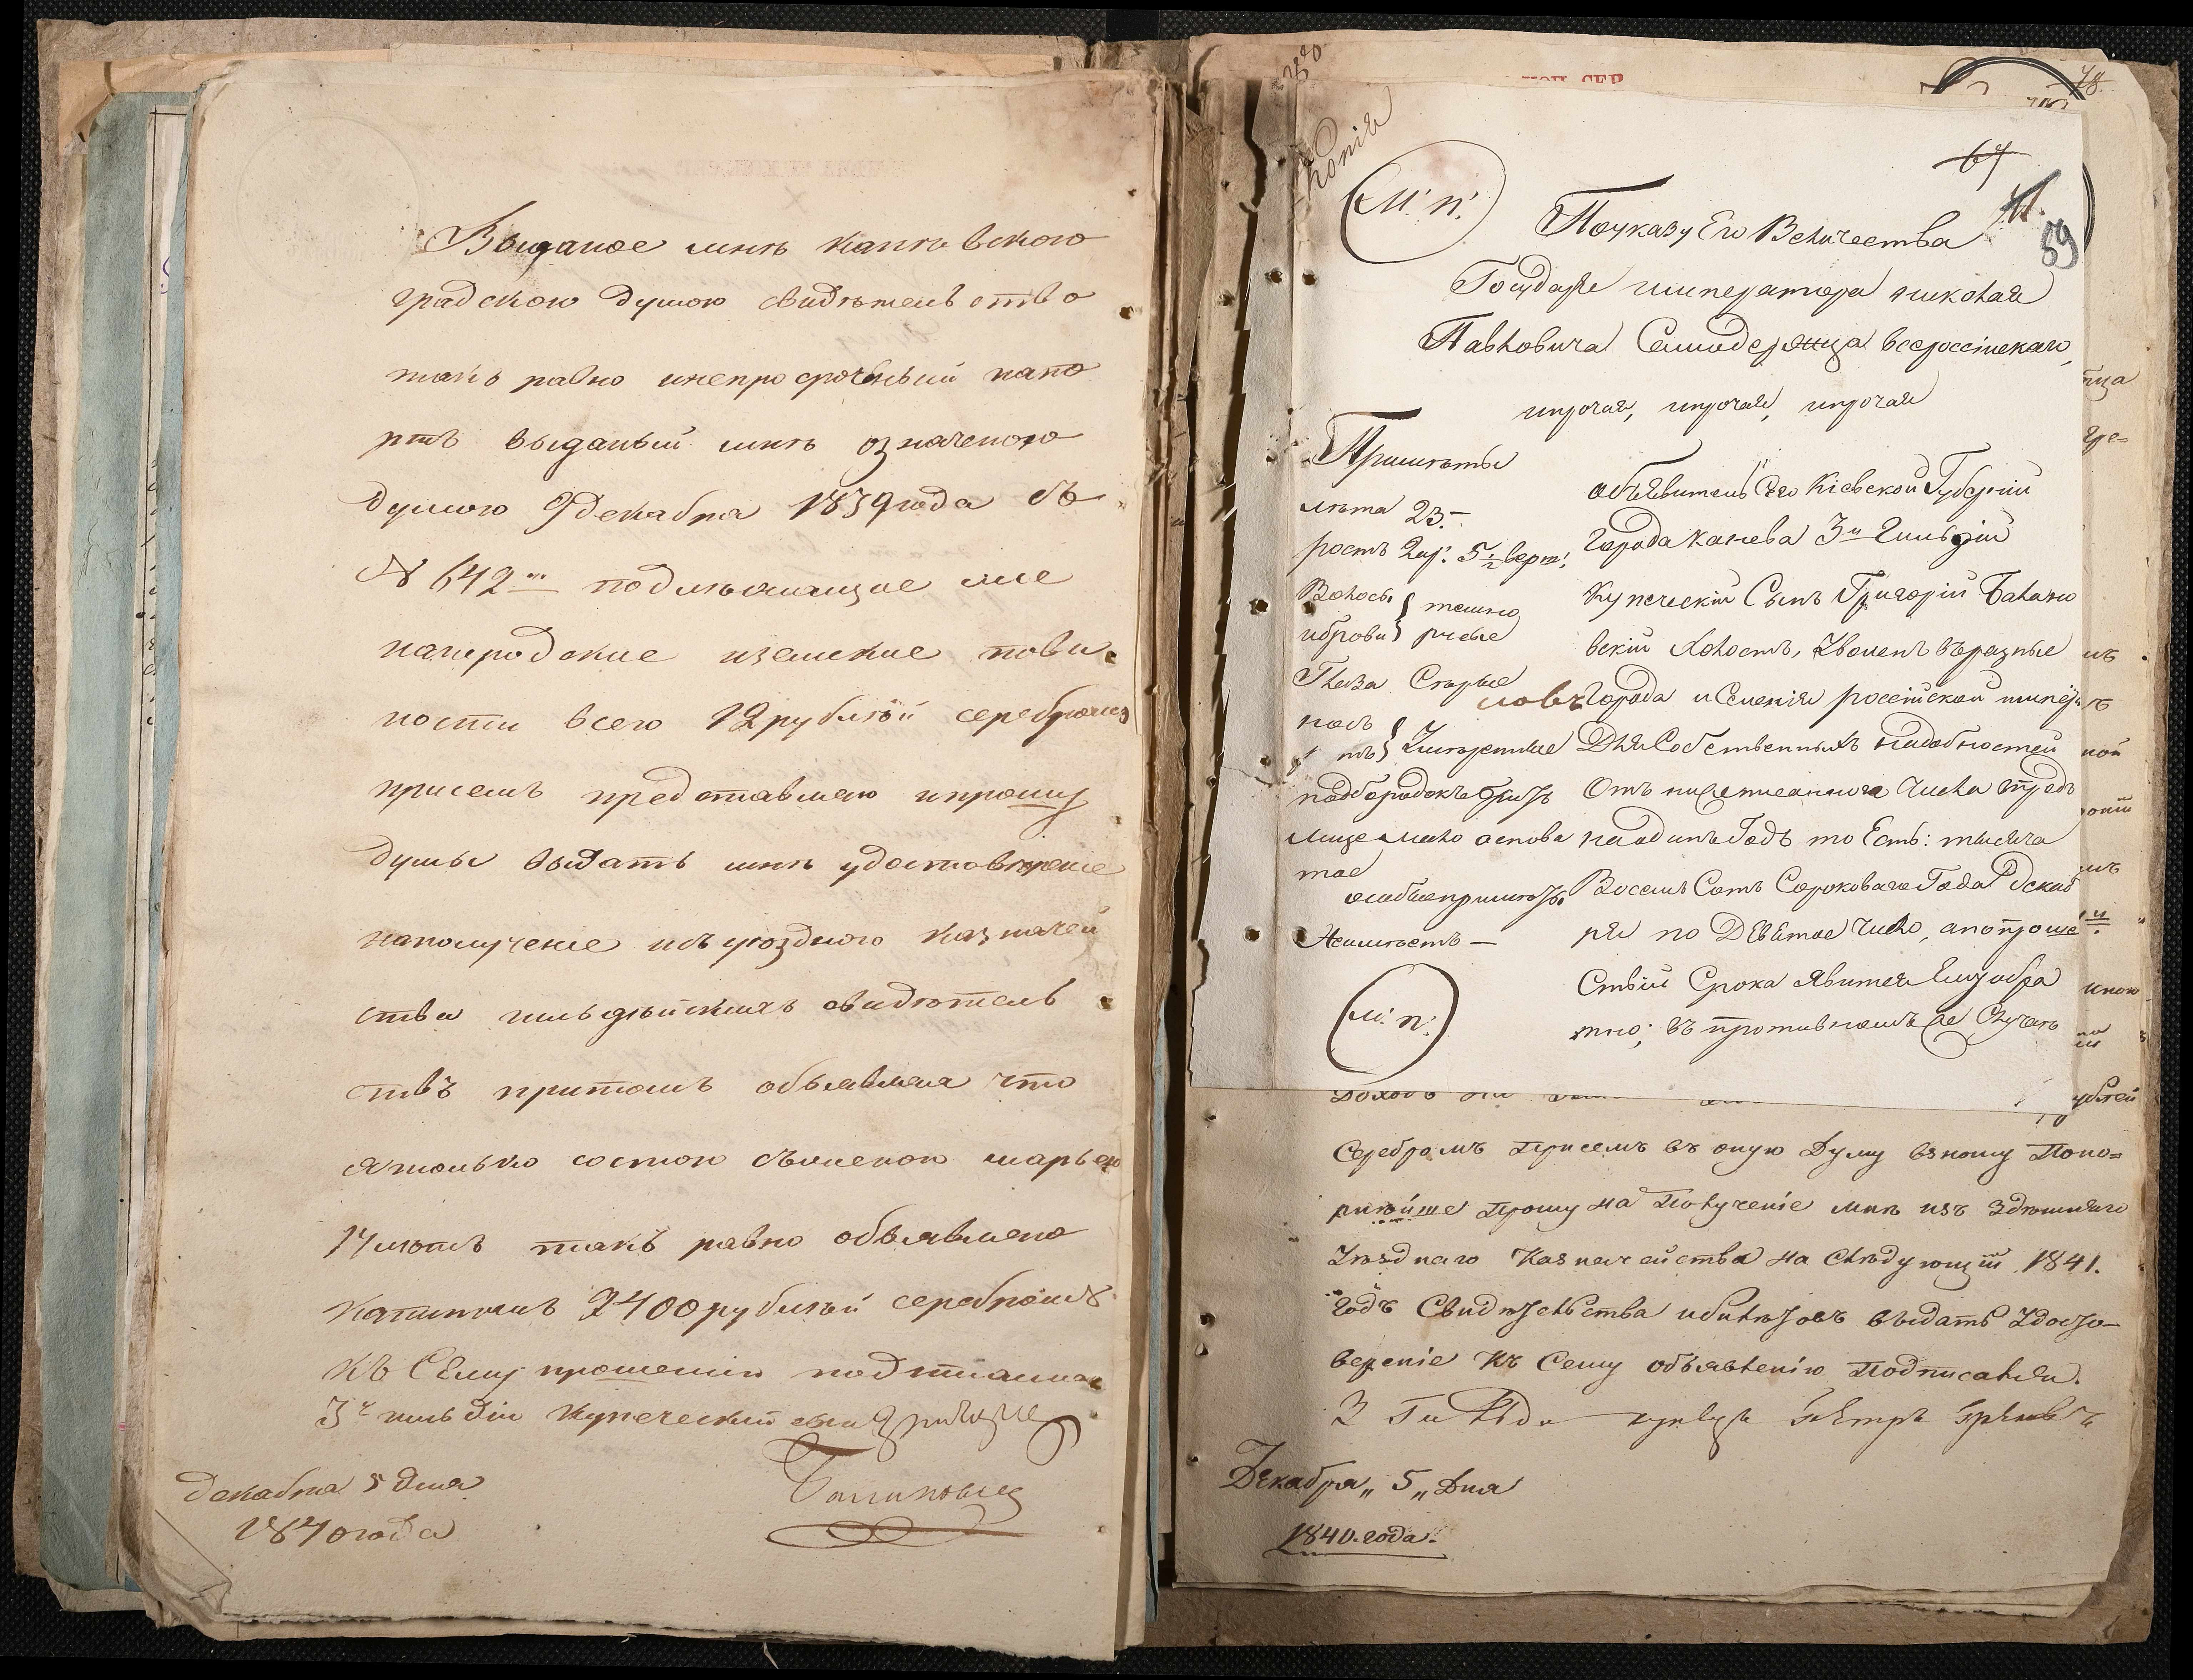 Выданое мнѣ каневского
градскою думою свидѣтельство
такъ равно инепросроченый папо
ртъ выданый мнѣ означеною
думою 9 декабря 1839 года съ
№ 642м подлѣжащие мне
нагородские иземские пови
ности всего 12 рублѣй серебромъ
присемъ представляю ипрошу
думы выдать мнѣ удостоверение
наполучение изъ уѣздного казначей
ства гильдѣйскихъ свидѣтель
ствъ притомъ объявляя что
ятолько состою съженою марьею
17 лѣтъ такъ равно объявлено
капиталъ 2400 рублѣй серебромъ
къ Сему прошению подписался
3й гильдіи купеческий сынъ Григорие
Балановски
декабря 5 дня
1840 года
78
Копія
67
59
М: п:
Поуказу Его Величества
Государя императора николая
Павловича Самодержца всероссійскаго,
ипрочая, ипрочая, ипрочая
Примѣты
лѣта 23.—
ростъ 2 ар: 5 1/2 верш:
Волосы
иброви } темно
русые
Глаза Серые
носъ
ротъ } Умѣренные
подбородокъ
лице мало оспова
тое
особыепримѣты
Неимѣетъ —
М: п:
объявитель Сего Кіевской Губерніи
Города Канева 3й Гильдіи
Купеческій Сынъ Григорій Балано
вский Холостъ, Уволенъ въразные
Города и Селенія россійской импері
Для Собственныхъ надобностей
Отъ нижеписаннаго Числа впредь
наодинъ Годъ то Есть: тысяча
Восемь Сотъ Сороковаго Года Декаб
ря по Девятое Число, апопроше
ствій Срока Явится Емуобра
тно; въ противномъ же Случаѣ
Серебромъ Присемъ въ оную Думу взношу Поко=
рнѣйше Прошу на Получение мнѣ изъ Здѣшняго
Уѣзднаго Казначейства на Слѣдующій 1841.
годъ Свидѣтельства ибилѣтовъ выдать Удосто—
верение Къ Сему объявленію Подписался.
3 Гильди купецъ Петръ
Декабря „ 5 „ Дня
1840. года.